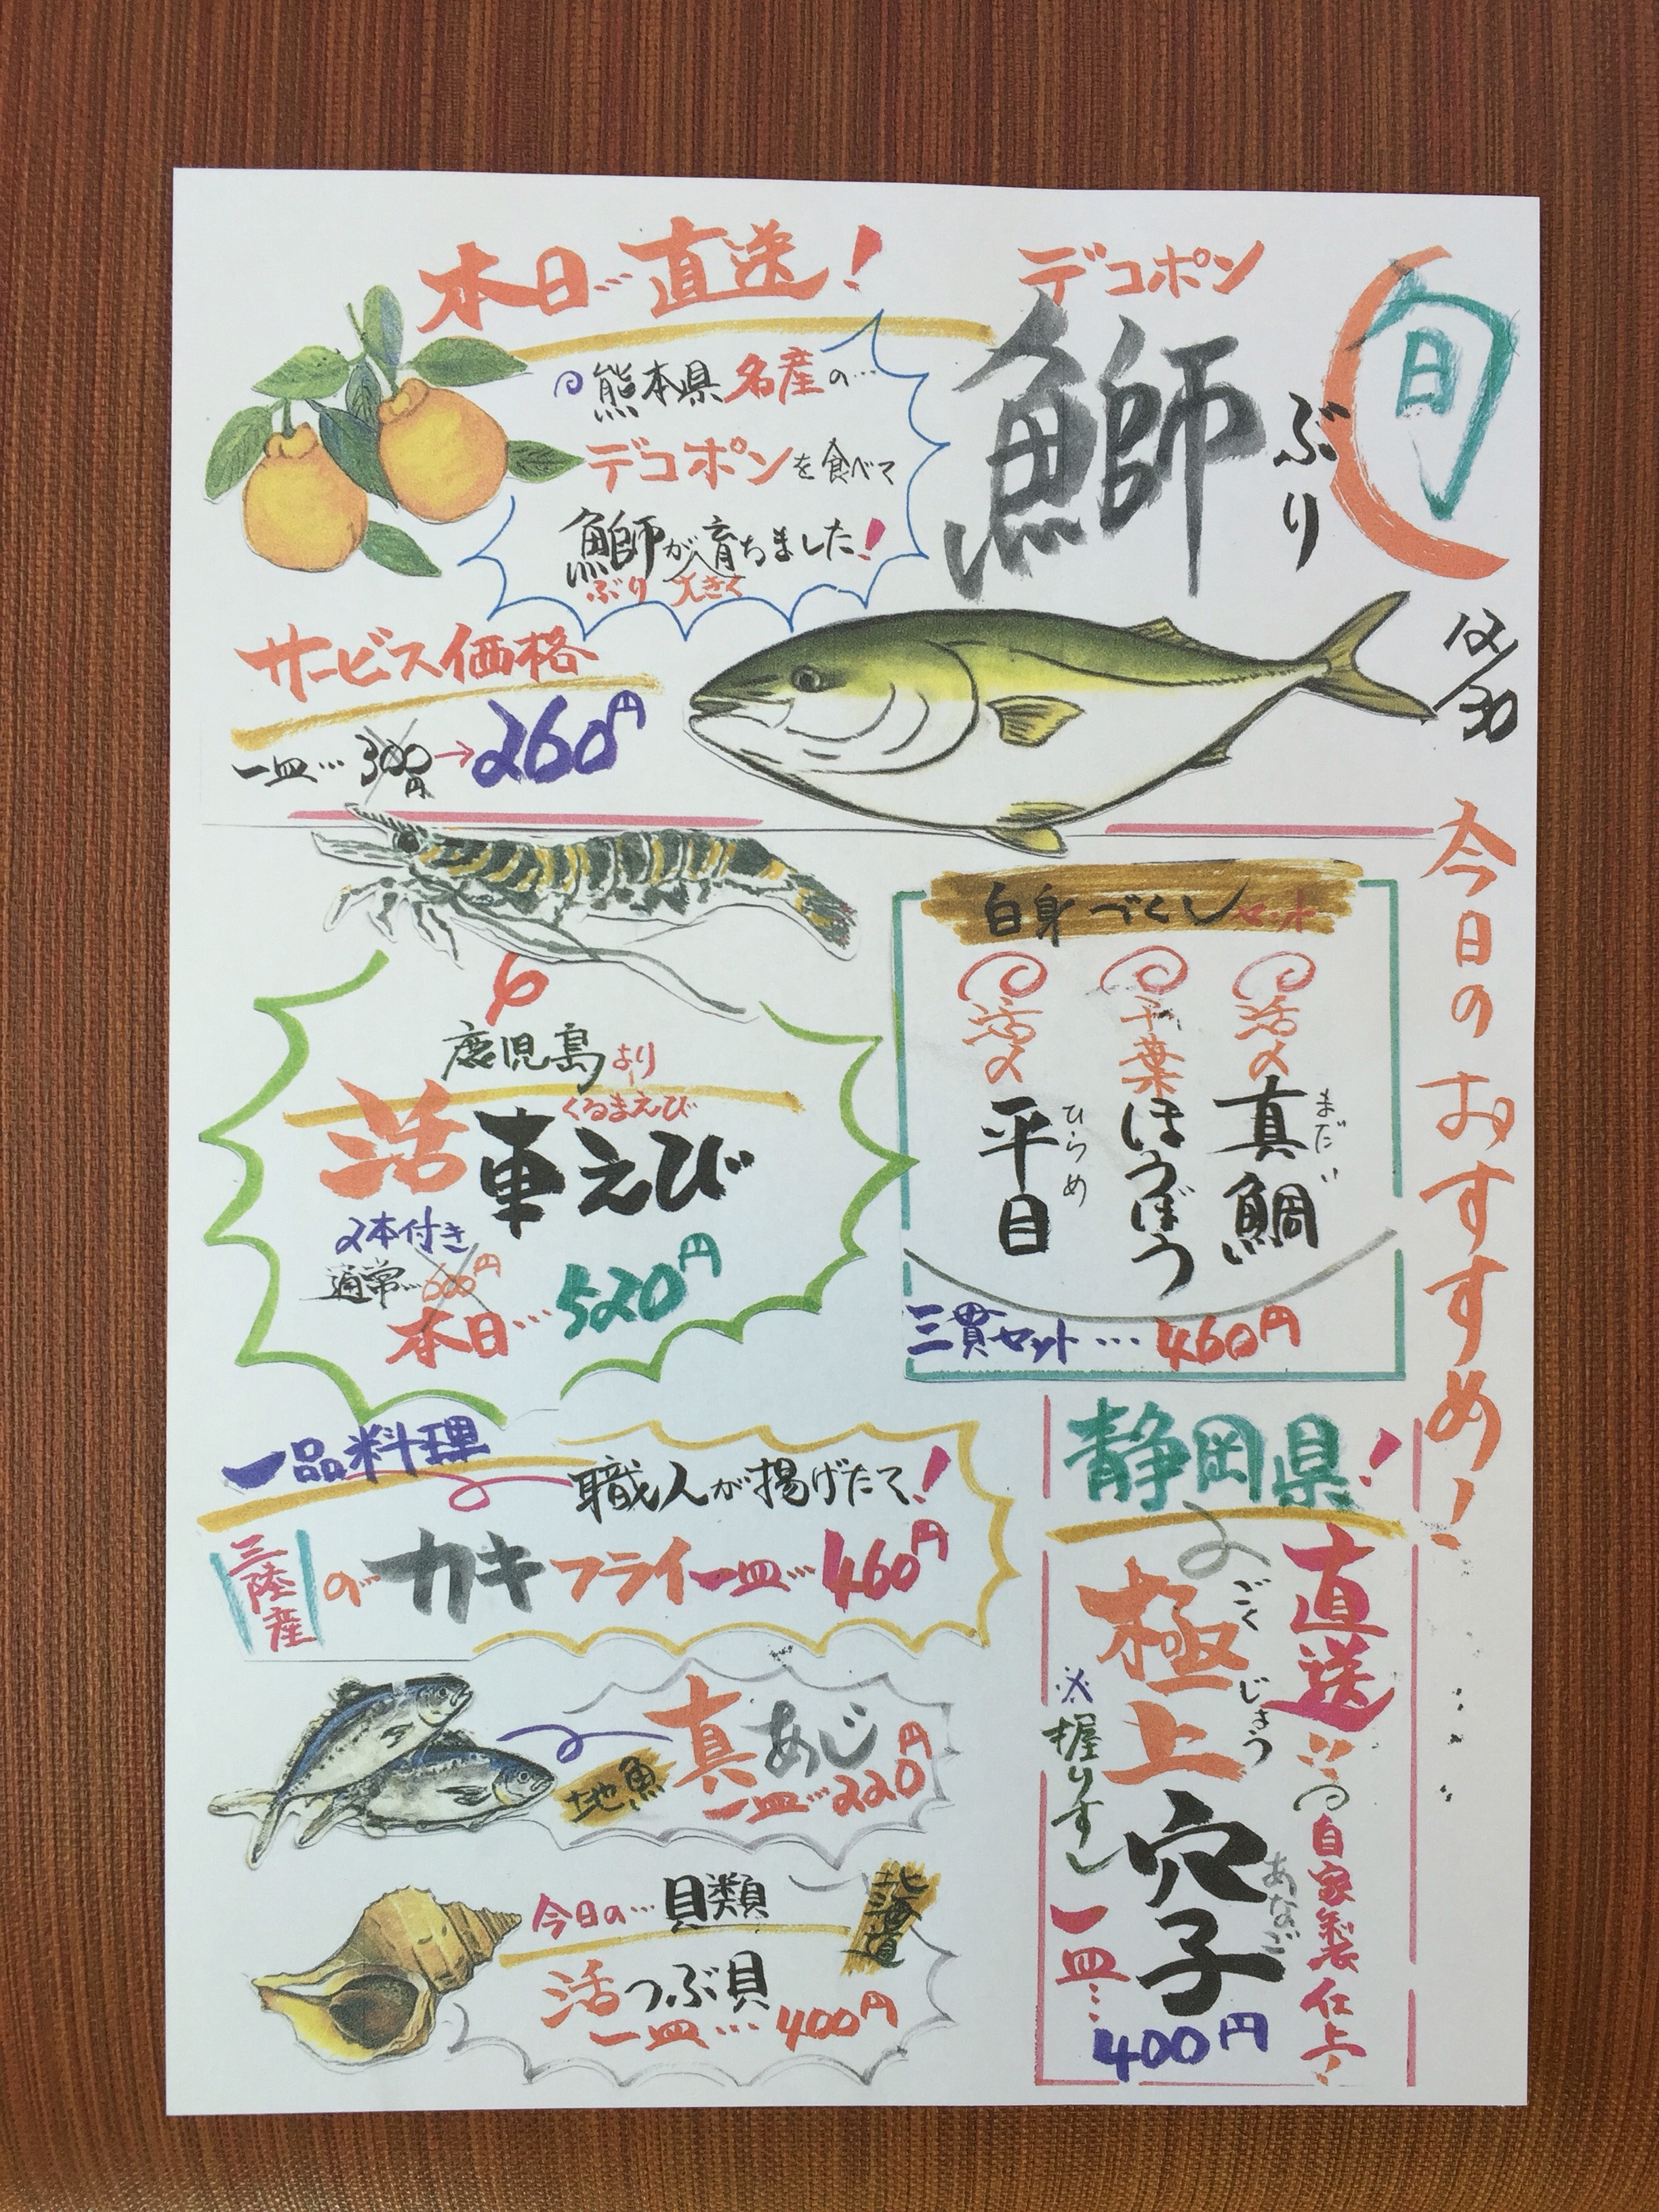 本日…直送!
デコポン
鰤
ぶり
旬
12/30
今日のおすすめ!
熊本県名産の…
デコポンを食べて
鰤が育ちました!
ぶり 大きく
サービス価格
一皿… 300円→260円
鹿児島より
くるまえび
活車えび
2本付き
通常…600円
本日…520円
白身づくしセット
活〆真鯛
まだい
千葉ほうぼう
活〆平目
ひらめ
三貫セット…460円
一品料理
職人が揚げたて!
三陸産のカキフライ一皿…460円
地魚
真あじ
一皿…220円
今日の…貝類
北海道
活つぶ貝
一皿…400円
静岡県!
直送…
自家製仕上
極上穴子
ごくじょう
あなご
※握りずし
一皿…
400円